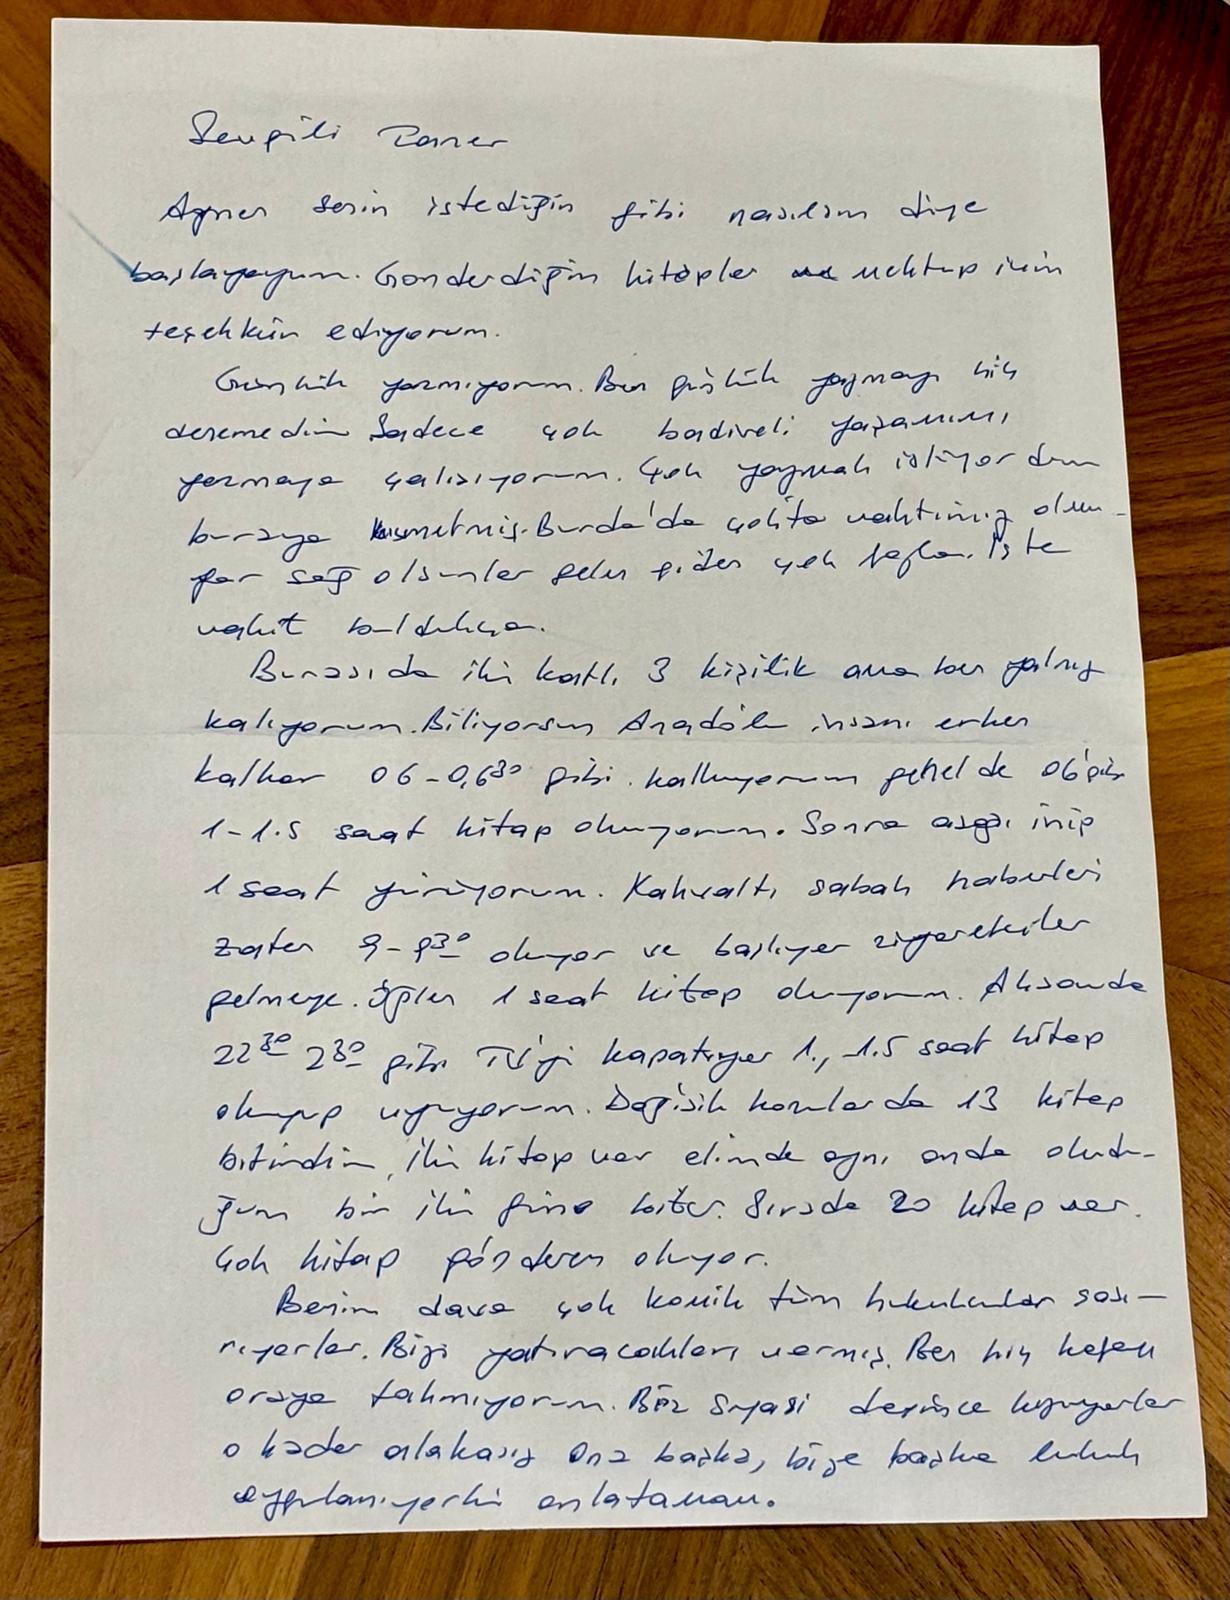 Sevgili Taner
Aynen senin istediğin gibi nasılsın diye
başlayayım. Gönderdiğin kitaplar mektup için
teşekkür ediyorum.
Günlük yazmıyorum. Ben günlük yazmayı hiç
denemedim Sadece çok badireli yaşamımı
yazmaya çalışıyorum. Çok yazmak istiyordum
buraya kısmetmiş. Burda'da çokta vaktimiz olmu-
yor sağ olsunlar gelen giden çok fazla. İşte
vakit buldukça.
Burasıda iki katlı 3 kişilik ama ben yalnız
kalıyorum. Biliyorsun Anadolu insanı erken
kalkar 06-0,6³⁰ gibi. kalkıyorum genelde 06'gibi
1-1.5 saat kitap okuyorum. Sonra aşağı inip
1 saat yürüyorum. Kahvaltı sabah haberleri
zaten 9-9³⁰ oluyor ve başlıyor ziyaretçiler
gelmeye. Öğlen 1 saat kitap okuyorum. Akşamda
22³⁰ 23⁰ gibi TV'yi kapatıyor 1., -1.5 saat kitap
okuyup uyuyorum. Değişik konularda 13 kitap
bitirdim, iki kitap var elimde aynı anda okudu-
ğum bir iki güne biter. Sırada 20 kitap var.
Çok kitap gönderen oluyor.
Benim dava çok komik tüm hukukcular şaşı-
rıyorlar. Bizi yatıracakları varmış. Ben hiç kafayı
oraya takmıyorum. Biz siyasi deyince kızıyorlar
o kadar alakasız Ona başka, bize başka hukuk
uygulanıyorki anlatamam.